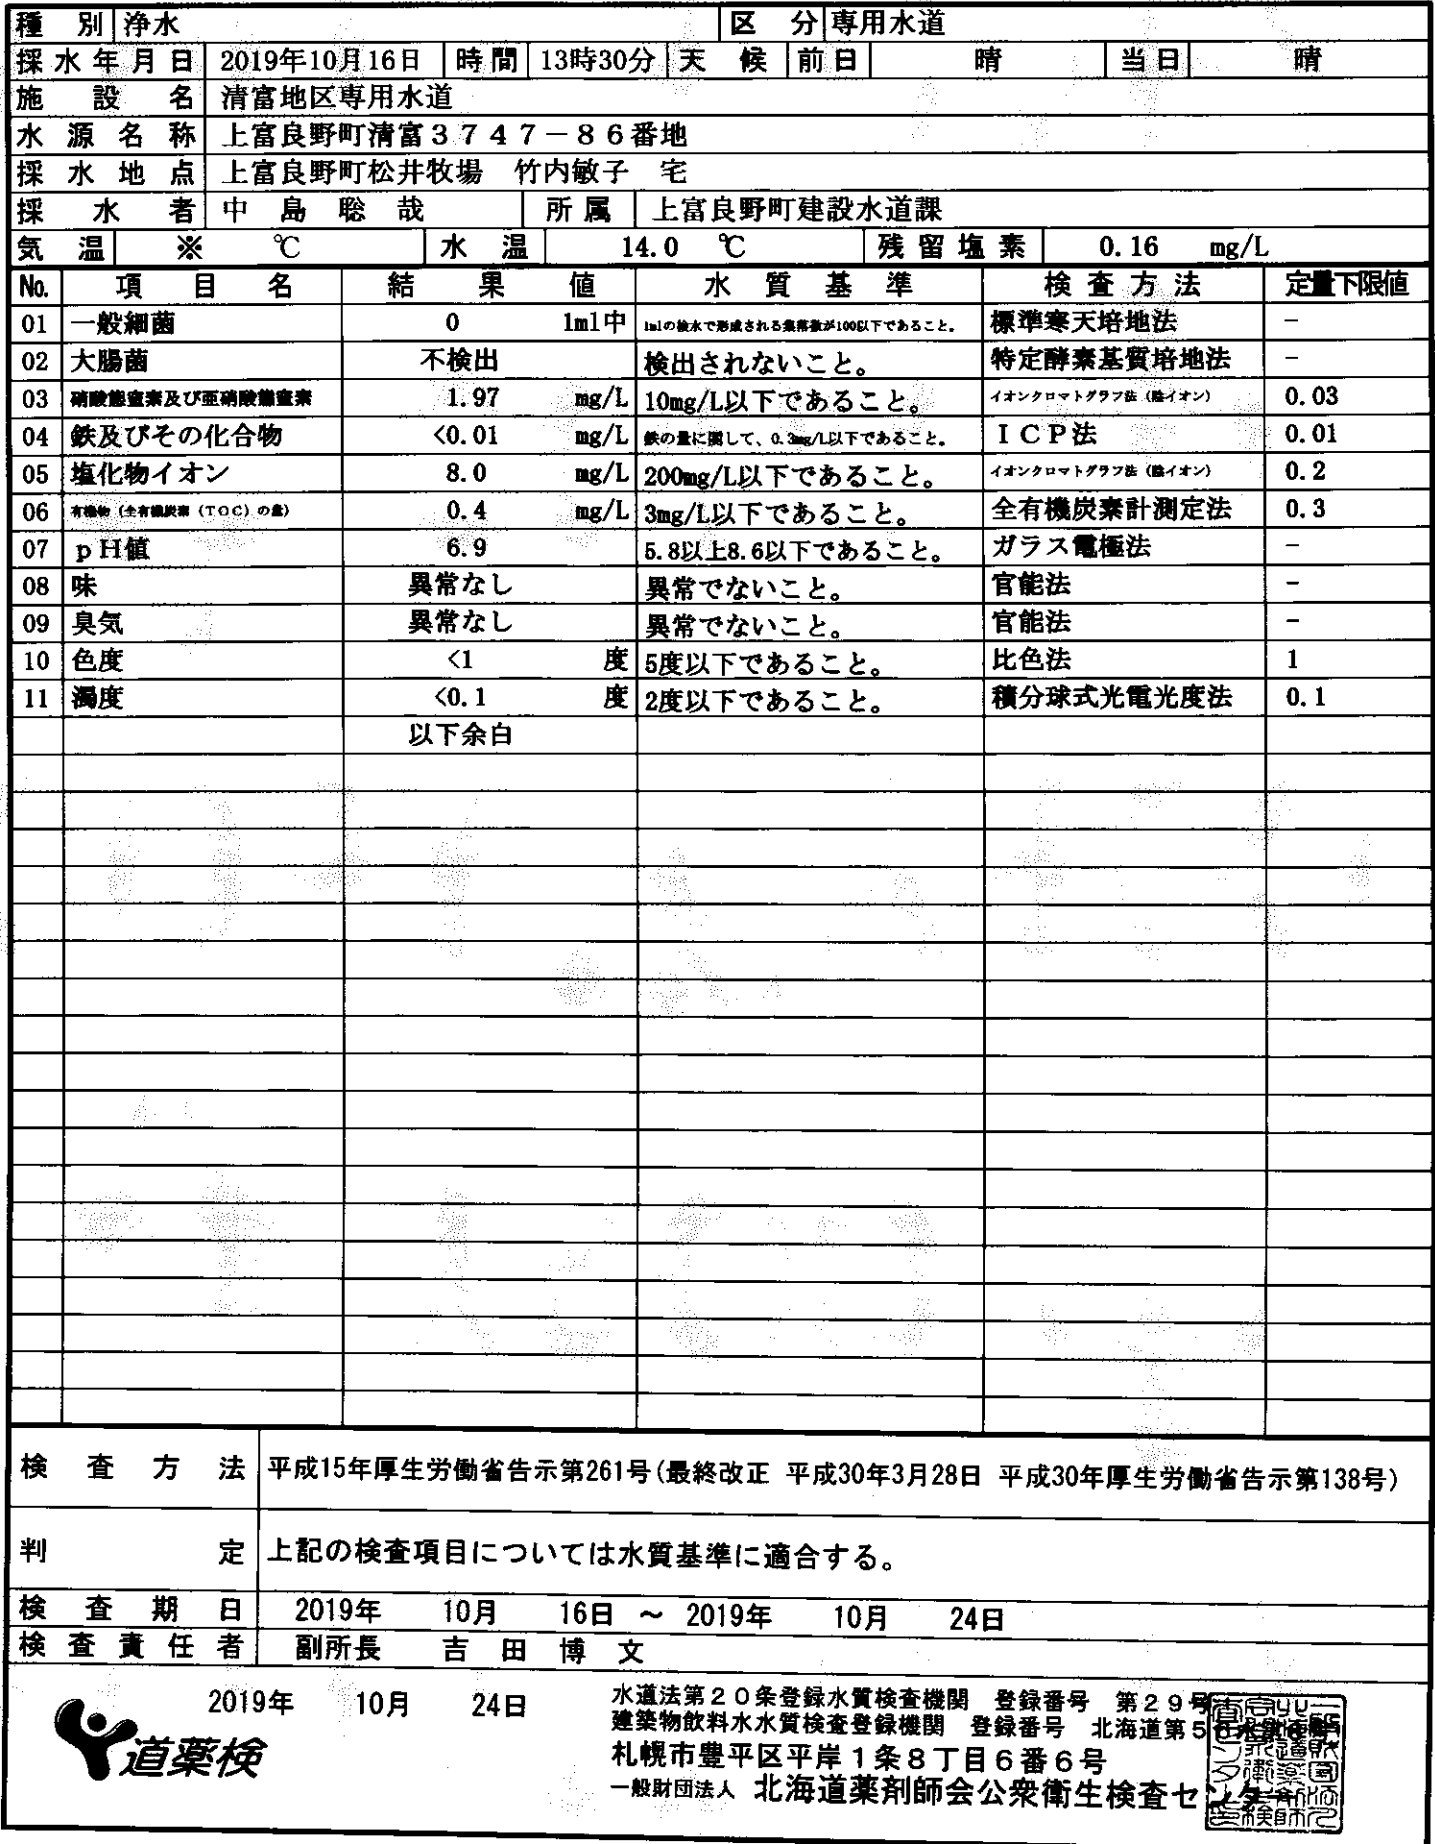 種別 浄水 区分 専用水道
採水年月日 2019年10月16日 時間 13時30分 天候 前日 晴 当日 晴
施設名 清富地区専用水道
水源名称 上富良野町清富3747-86番地
採水地点 上富良野町松井牧場 竹内敏子 宅
採水者 中島聡哉 所属 上富良野町建設水道課
気温 ※ ℃ 水温 14.0 ℃ 残留塩素 0.16 mg/L
No. 項目名 結果値 水質基準 検査方法 定量下限値
01 一般細菌 0 1ml中 1mlの検水で形成される集落数が100以下であること。 標準寒天培地法 -
02 大腸菌 不検出 検出されないこと。 特定酵素基質培地法 -
03 硝酸態窒素及び亜硝酸態窒素 1.97 mg/L 10mg/L以下であること。 イオンクロマトグラフ法（陰イオン） 0.03
04 鉄及びその化合物 <0.01 mg/L 鉄の量に関して、0.3mg/L以下であること。 ICP法 0.01
05 塩化物イオン 8.0 mg/L 200mg/L以下であること。 イオンクロマトグラフ法（陰イオン） 0.2
06 有機物（全有機炭素（TOC）の量） 0.4 mg/L 3mg/L以下であること。 全有機炭素計測定法 0.3
07 pH値 6.9 5.8以上8.6以下であること。 ガラス電極法 -
08 味 異常なし 異常でないこと。 官能法 -
09 臭気 異常なし 異常でないこと。 官能法 -
10 色度 <1 度 5度以下であること。 比色法 1
11 濁度 <0.1 度 2度以下であること。 積分球式光電光度法 0.1
以下余白
検査方法 平成15年厚生労働省告示第261号(最終改正 平成30年3月28日 平成30年厚生労働省告示第138号)
判定 上記の検査項目については水質基準に適合する。
検査期日 2019年 10月 16日 ～ 2019年 10月 24日
検査責任者 副所長 吉田博文
2019年 10月 24日
道薬検
水道法第20条登録水質検査機関 登録番号 第29号
建築物飲料水水質検査登録機関 登録番号 北海道第5
札幌市豊平区平岸1条8丁目6番6号
一般財団法人 北海道薬剤師会公衆衛生検査センター